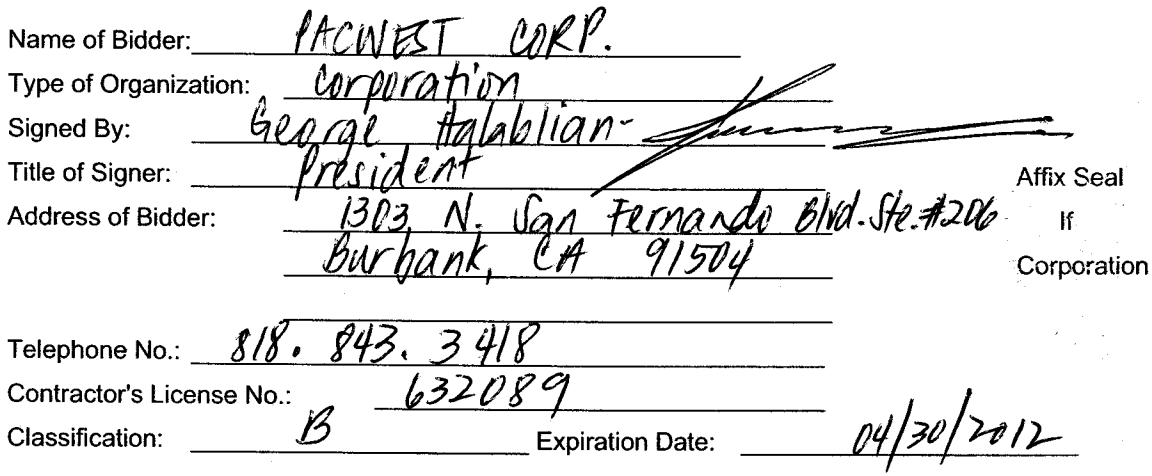 Name of Bidder: PACWEST CORP.
Type of Organization: Corporation
Signed By: George Halablian-
Title of Signer: President
Affix Seal
Address of Bidder: 1303 N. San Fernando Blvd. Ste. #206
If
Burbank, CA 91504
Corporation
Telephone No.: 818. 843. 3418
Contractor's License No.: 632089
Classification: B Expiration Date: 04/30/2012